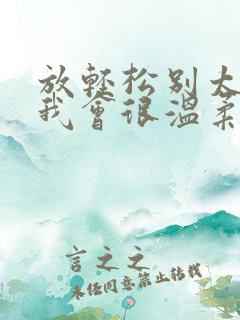 放轻松别太
我会很温柔
言之之
未经同意禁止转载